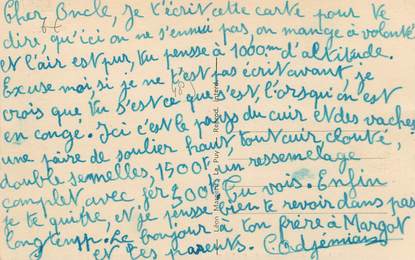 Cher Oncle, je t'écrit cette carte pour te
dire, qu'ici on ne s'ennui pas, on mange à volonté
et l'air est pur, tu pensse à 1000m d'altitude.
Excuse moi, si je ne t'est pas écrit avant, je
crois que tu s'est ce que s'est, l'orsqu'on est
en congé. Ici c'est le pays du cuir et des vaches
une paire de soulier haut tout cuir clouté,
double semelles, 1500f un ressemelage
complet avec fer 500f tu vois. Enfin
je te quitte, et je pensse bien te revoir dans pas
longtemp. Le bonjour à ton frère à Margot
et tes parents.